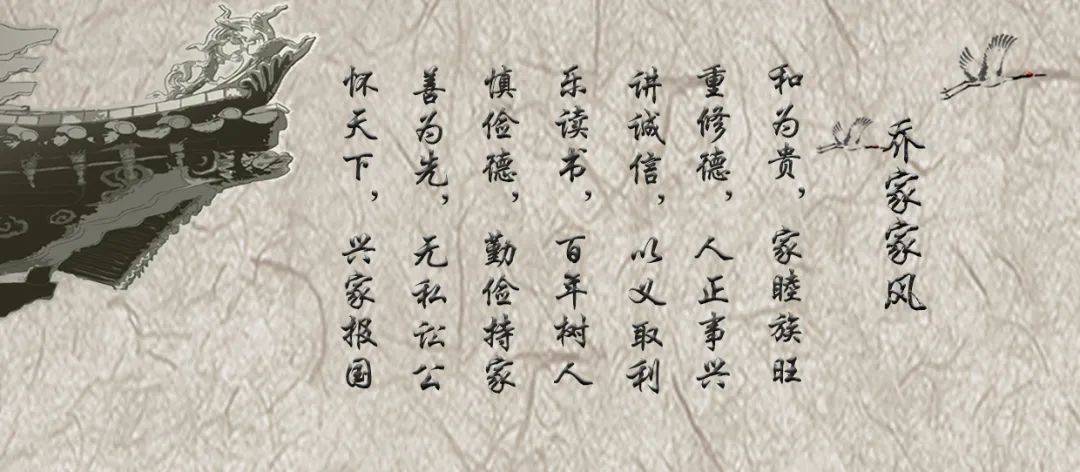 乔家家风
和为贵，家睦族旺
重修德，人正事兴
讲诚信，以义取利
乐读书，百年树人
慎俭德，勤俭持家
善为先，无私讼公
怀天下，兴家报国